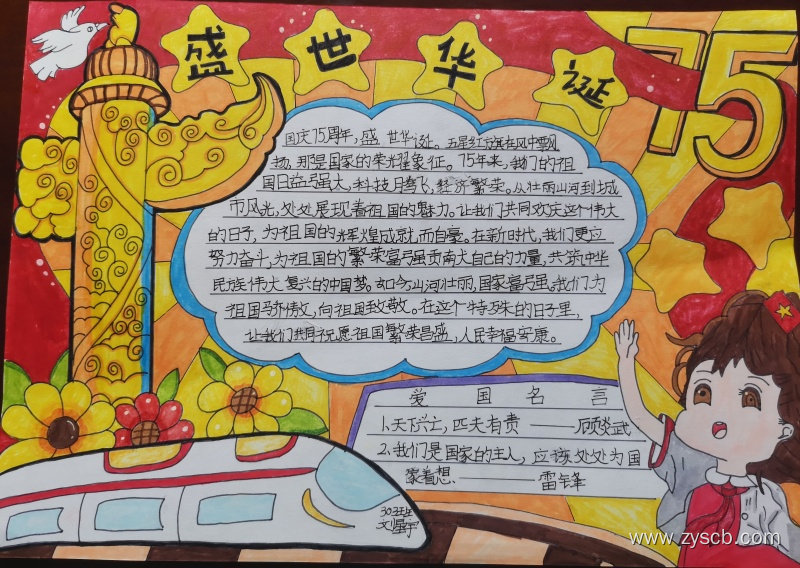 盛世华诞
75
国庆75周年，盛世华诞。五星红旗在风中飘
扬，那是国家的荣耀象征。75年来，我们的祖
国日益强大，科技腾飞，经济繁荣。从壮丽山河到城
市风光，处处展现着祖国的魅力。让我们共同欢庆这个伟大
的日子，为祖国的辉煌成就而自豪。在新时代，我们更应
努力奋斗，为祖国的繁荣富强贡献自己的力量，共筑中华
民族伟大复兴的中国梦。如今，山河壮丽，国家富强。我们为
祖国骄傲，向祖国致敬。在这个特殊的日子里，
让我们共同祝愿祖国繁荣昌盛，人民幸福安康。
爱国名言
1.天下兴亡，匹夫有责——顾炎武
2.我们是国家的主人，应该处处为国
家着想——雷锋
www.zyscb.com